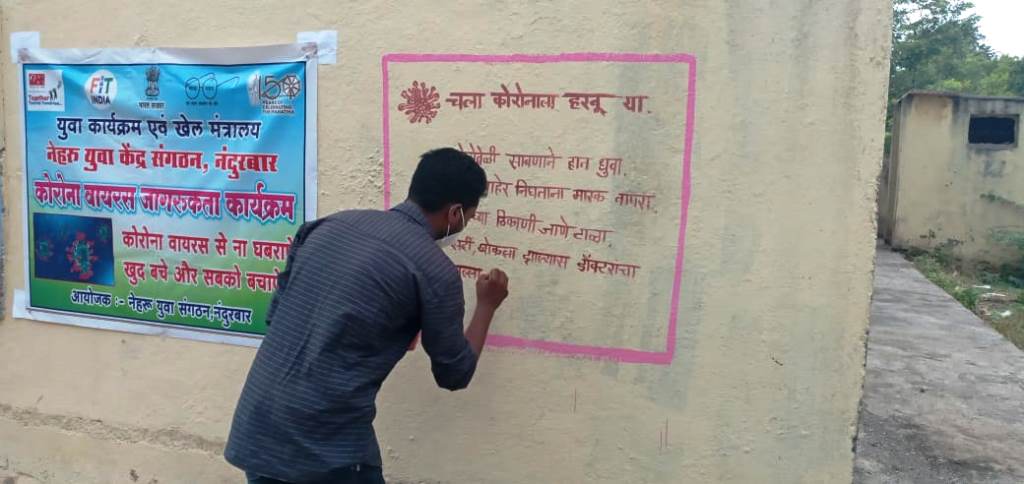 Together
FIT
INDIA
150
YEARS OF
CELEBRATING
THE MAHATMA
युवा कार्यक्रम एवं खेल मंत्रालय
नेहरु युवा केंद्र संगठन, नंदुरबार
कोरोना वायरस जागरुकता कार्यक्रम
कोरोना वायरस से ना घबराये
खुद बचे और सबको बचाए
आयोजक :- नेहरू युवा संगठन,नंदुरबार
चला कोरोनाला हरवू या.
साबणाने हात धुवा.
निघताना मास्क वापरा.
ठिकाणी जाणे टाळा.
सर्दी, खोकला झाल्यास डॉक्टरांचा